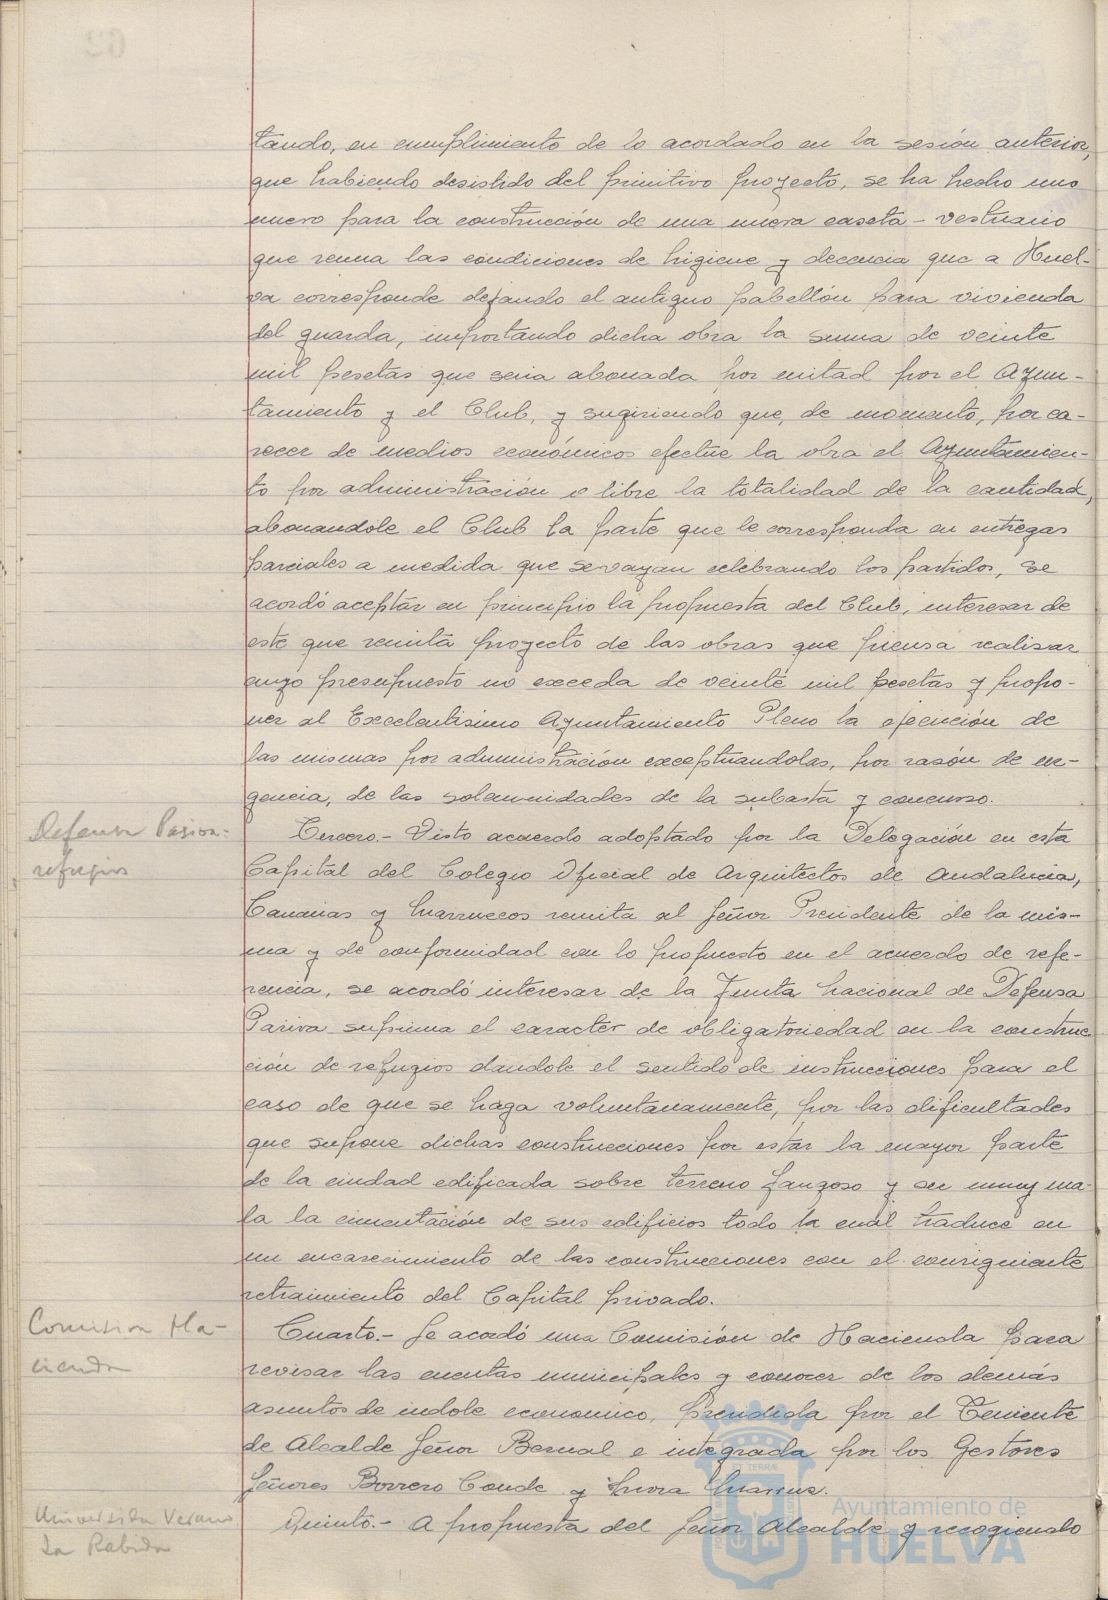 tando, en cumplimiento de lo acordado en la sesión anterior,
que habiendo desistido del primitivo proyecto, se ha hecho uno
nuevo para la construcción de una nueva caseta-vestuario
que reuna las condiciones de higiene y decencia que a Huel-
va corresponde dejando el antiguo pabellón para vivienda
del guarda, importando dicha obra la suma de veinte
mil pesetas que seria abonada por mitad por el Ayun-
tamiento y el Club, y sugiriendo que, de momento, por ca-
recer de medios económicos efectúe la obra el Ayuntamien-
to por administración o libre la totalidad de la cantidad,
abonandole el Club la parte que le corresponda en entregas
parciales a medida que se vayan celebrando los partidos, se
acordó aceptar en principio la propuesta del Club, interesar de
este que remita proyecto de las obras que piensa realizar
cuyo presupuesto no exceda de veinte mil pesetas y propo-
ner al Excelentisimo Ayuntamiento Pleno la ejecución de
las mismas por administración exceptuandolas, por razón de ur-
gencia, de las solemnidades de la subasta y concurso.
Defensa Pasiva-
refugios
Tercero.- Visto acuerdo adoptado por la Delegación en esta
Capital del Colegio Oficial de Arquitectos de Andalucia,
Canarias y Marruecos remita al Señor Presidente de la mis-
ma y de conformidad con lo propuesto en el acuerdo de refe-
rencia, se acordó interesar de la Junta Nacional de Defensa
Pasiva suprima el caracter de obligatoriedad en la construc-
ción de refugios dandole el sentido de instrucciones para el
caso de que se haga voluntariamente, por las dificultades
que supone dichas construcciones por estar la mayor parte
de la ciudad edificada sobre terreno fangoso y ser muy ma-
la la cimentación de sus edificios todo la cual traduce en
un encarecimiento de las construcciones con el consiguiente
retraimiento del Capital privado.
Comision Ha-
cienda
Cuarto.- Se acordó una Comisión de Hacienda para
revisar las cuentas municipales y conocer de los demás
asuntos de indole economico, presidida por el Teniente
de Alcalde Señor Bernal e integrada por los Gestores
Señores Borrero Conde y Mora
Universida Verano
La Rabida
Quinto.- A propuesta del Señor Alcalde y recogiendo
Ayuntamiento de
HUELVA